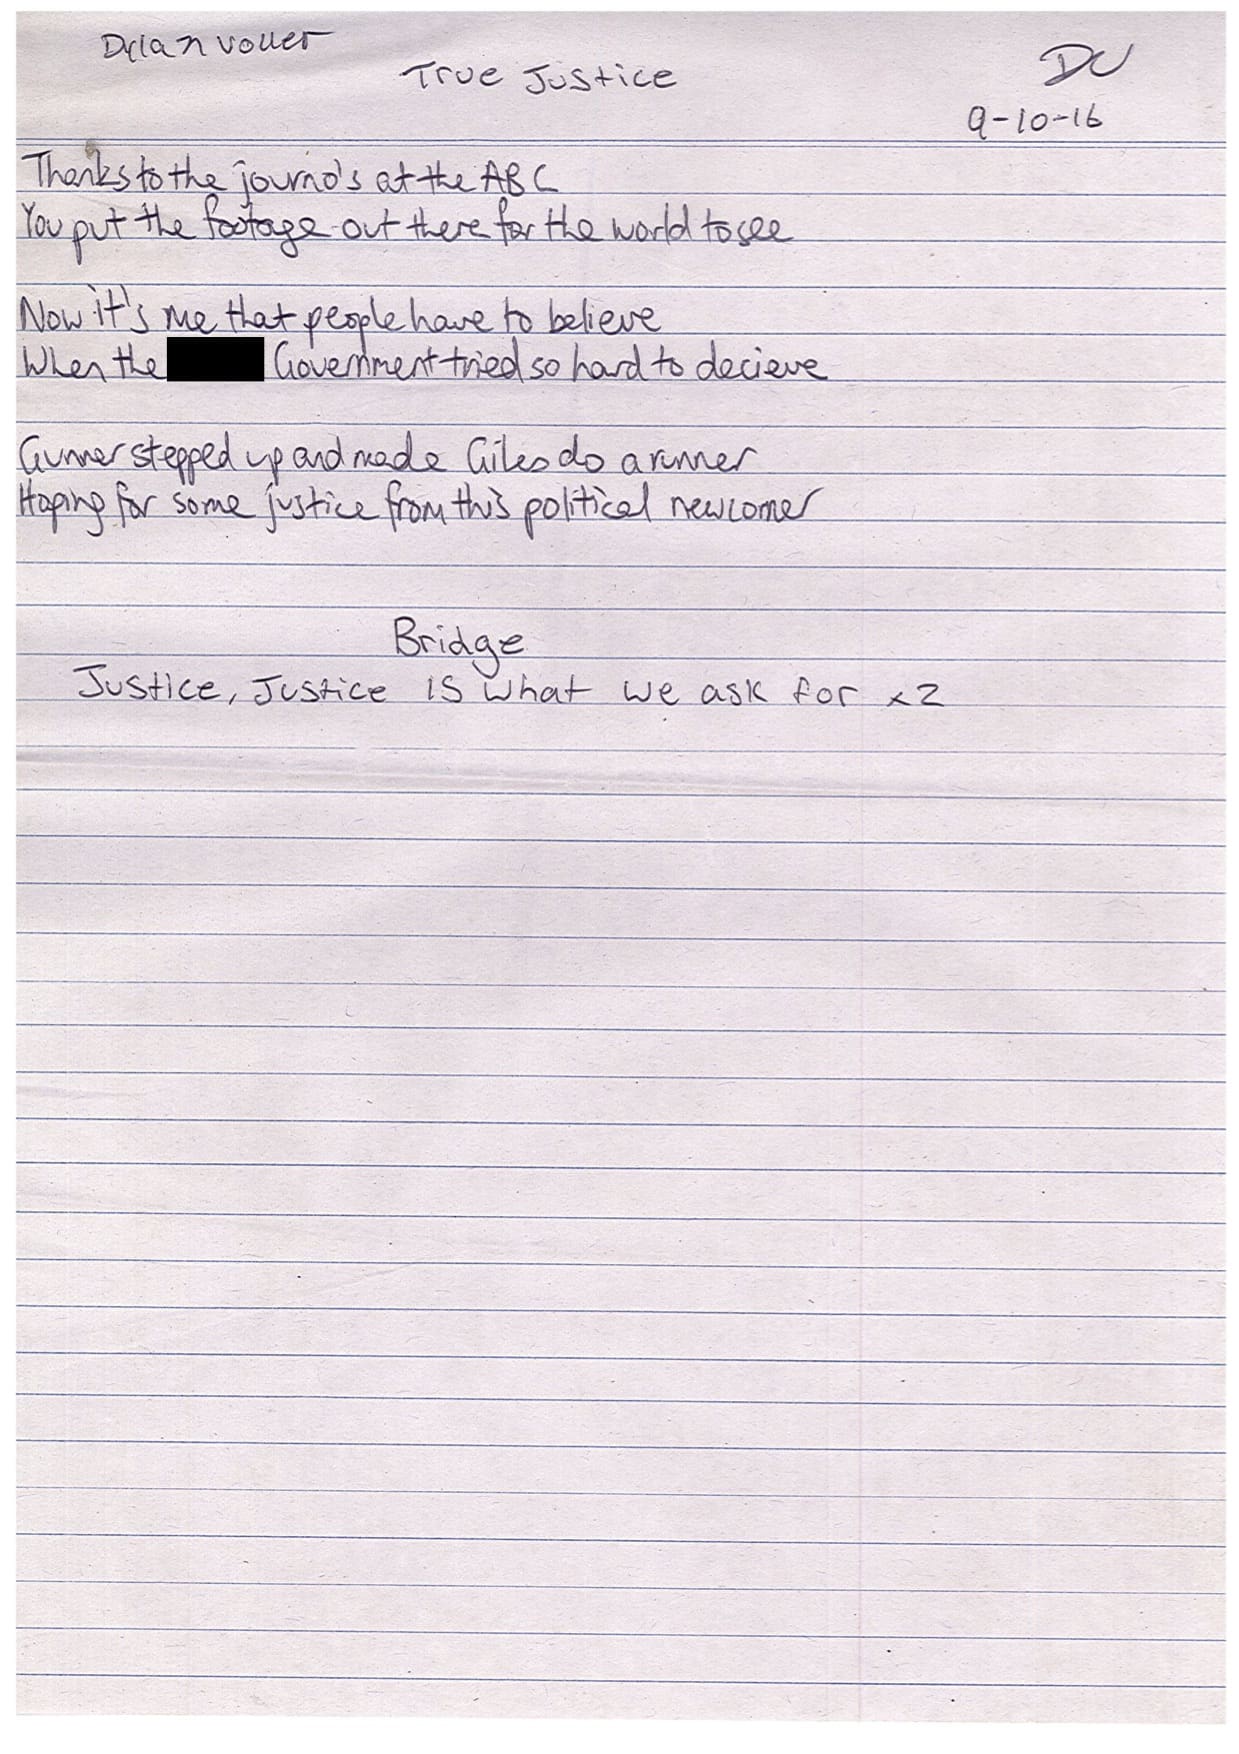 Dylan Voller
True Justice
DV
9-10-16
Thanks to the journo's at the ABC
You put the footage out there for the world to see
Now it's me that people have to believe
When the Government tried so hard to decieve
Gunner stepped up and made Giles do a runner
Hoping for some justice from this political newcomer
Bridge
Justice, Justice is what we ask for x2